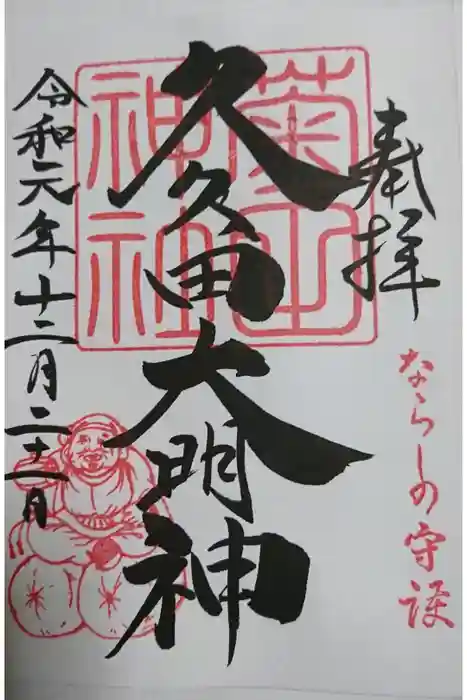 奉拝
ならしの守護
菊田神社
久久田大明神
令和元年十二月二十一日